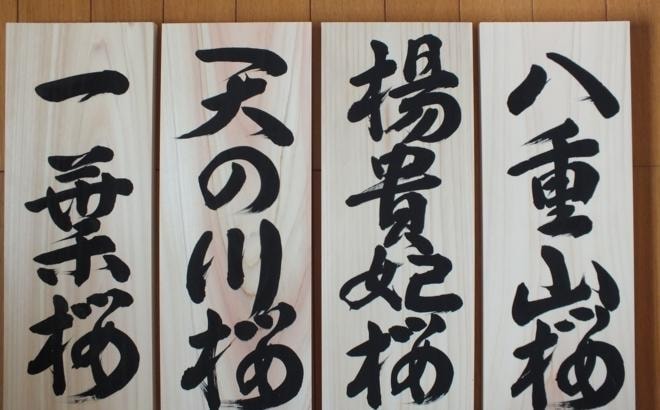 八重山桜
楊貴妃桜
天の川桜
一葉桜